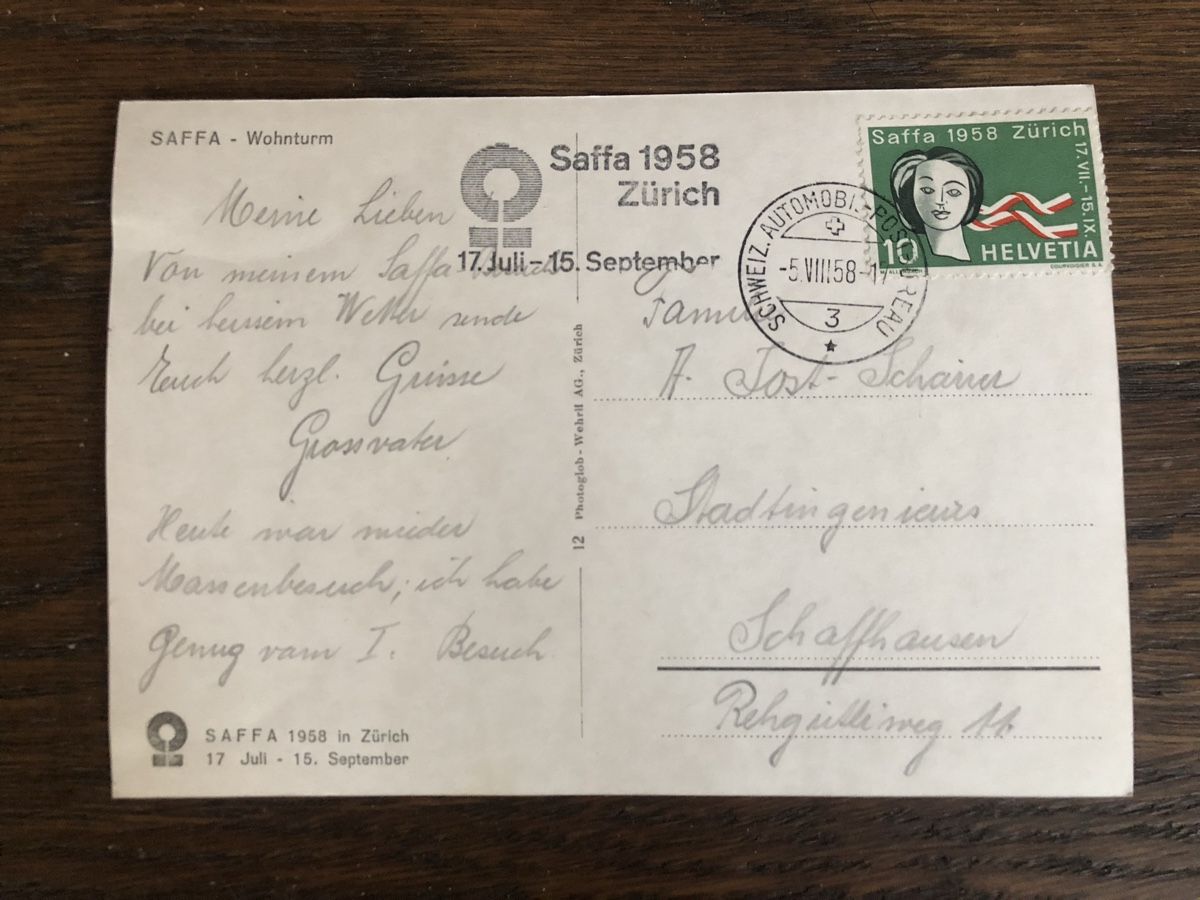 SAFFA - Wohnturm
Saffa 1958
Zürich
17. Juli - 15. September
Saffa 1958 Zürich
17. VII. - 15. IX.
10
HELVETIA
COURVOISIER S.A.
SCHWEIZ. AUTOMOBIL-POSTBUREAU
-5.VIII58-17
3
Meine Lieben
Von meinem Saffa
bei heissem Wetter sende
Euch herzl. Grüsse
Grossvater
Heute war wieder
Massenbesuch; ich habe
Genug vom I. Besuch.
SAFFA 1958 in Zürich
17 Juli - 15. September
12 Photoglob-Wehrli AG., Zürich
Familie
A. Jost-Schärrer
Stadtingenieurs
Schaffhausen
Rehgütliweg 11.